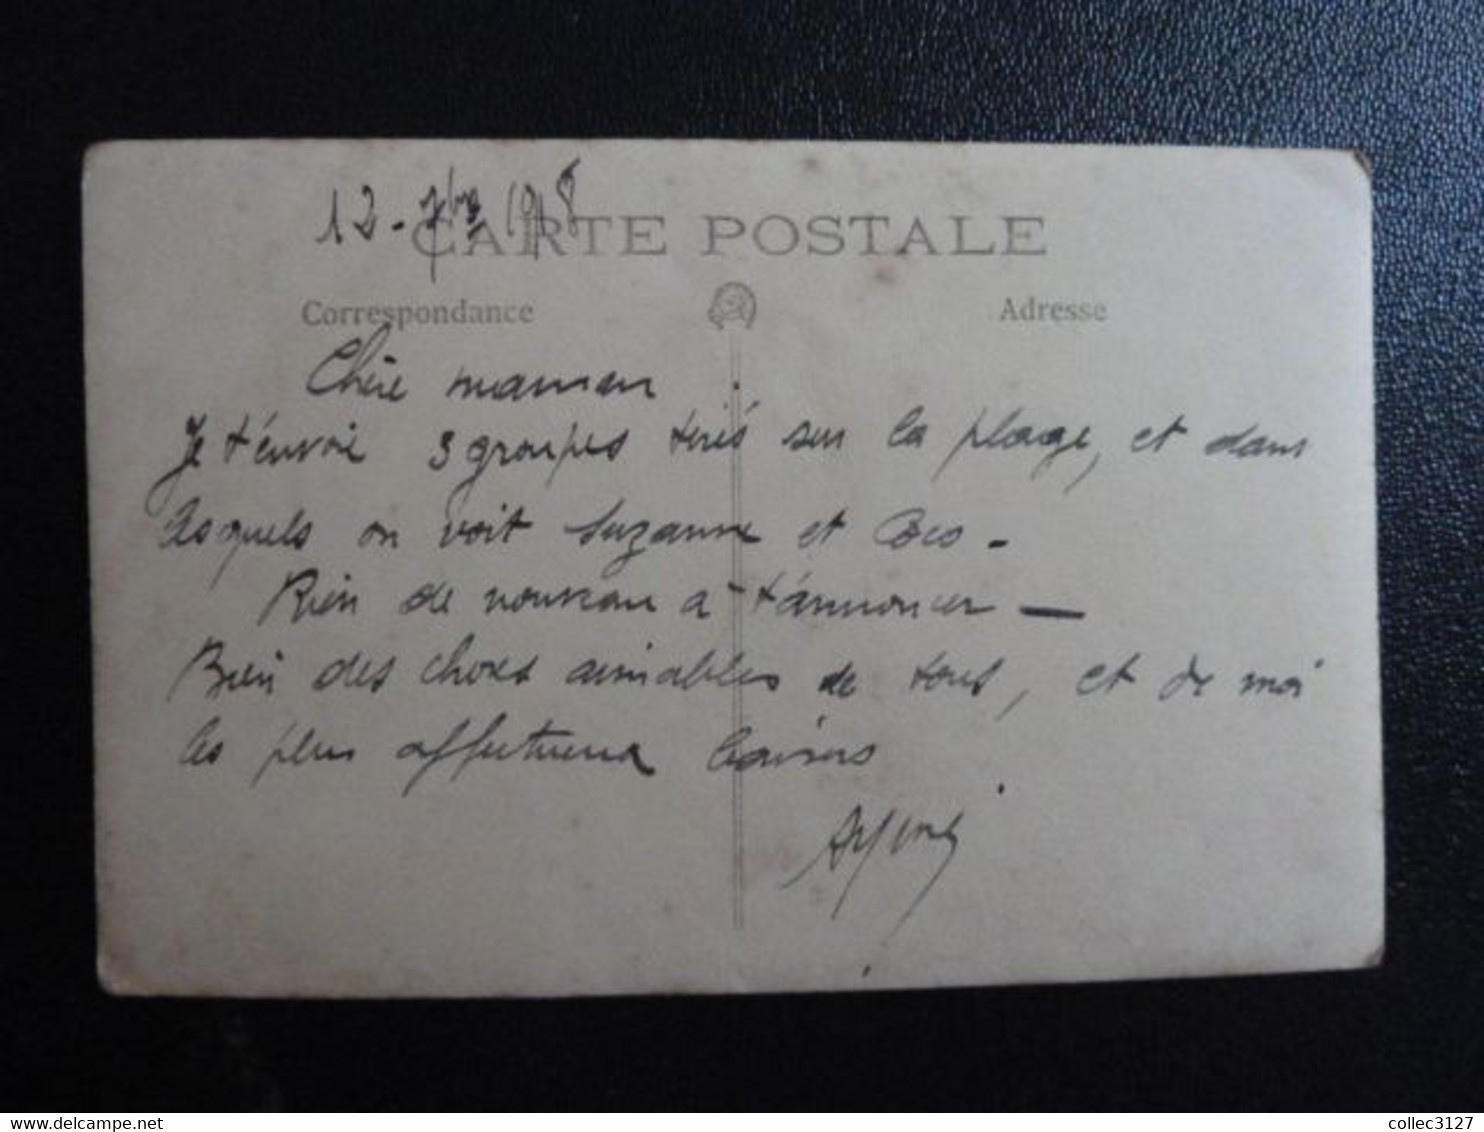 12 - 7bre 1918
CARTE POSTALE
Correspondance
Adresse
Chère maman
Je t'envoie 3 groupes tirés sur la plage, et dans
lesquels on voit Suzanne et Coco -
Rien de nouveau à t'annoncer —
Bien des choses aimables de tous, et de moi
les plus affectueux baisers
collec3127